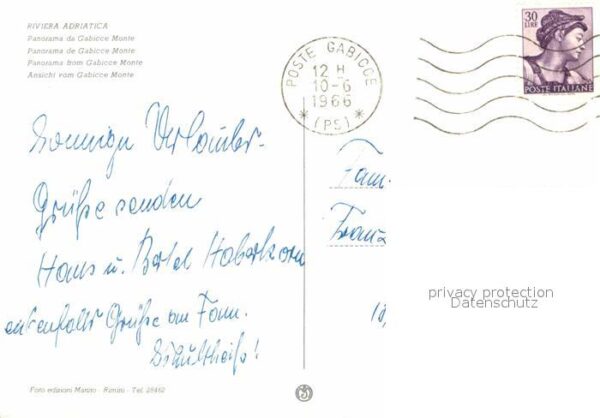 RIVIERA ADRIATICA
Panorama da Gabicce Monte
Panorama de Gabicce Monte
Panorama from Gabicce Monte
Ansicht vom Gabicce Monte
POSTE GABICCE
12 H
10-6
1966
* (PS) *
30
LIRE
POSTE ITALIANE
Sonnige Urlauber-
Grüße senden
Hans u. Bertel Haberkorn
ebenfalls Grüße an Fam.
Schultheiß!
Fam.
Franz
privacy protection
Datenschutz
Foto edizioni Marino - Rimini - Tel. 28462